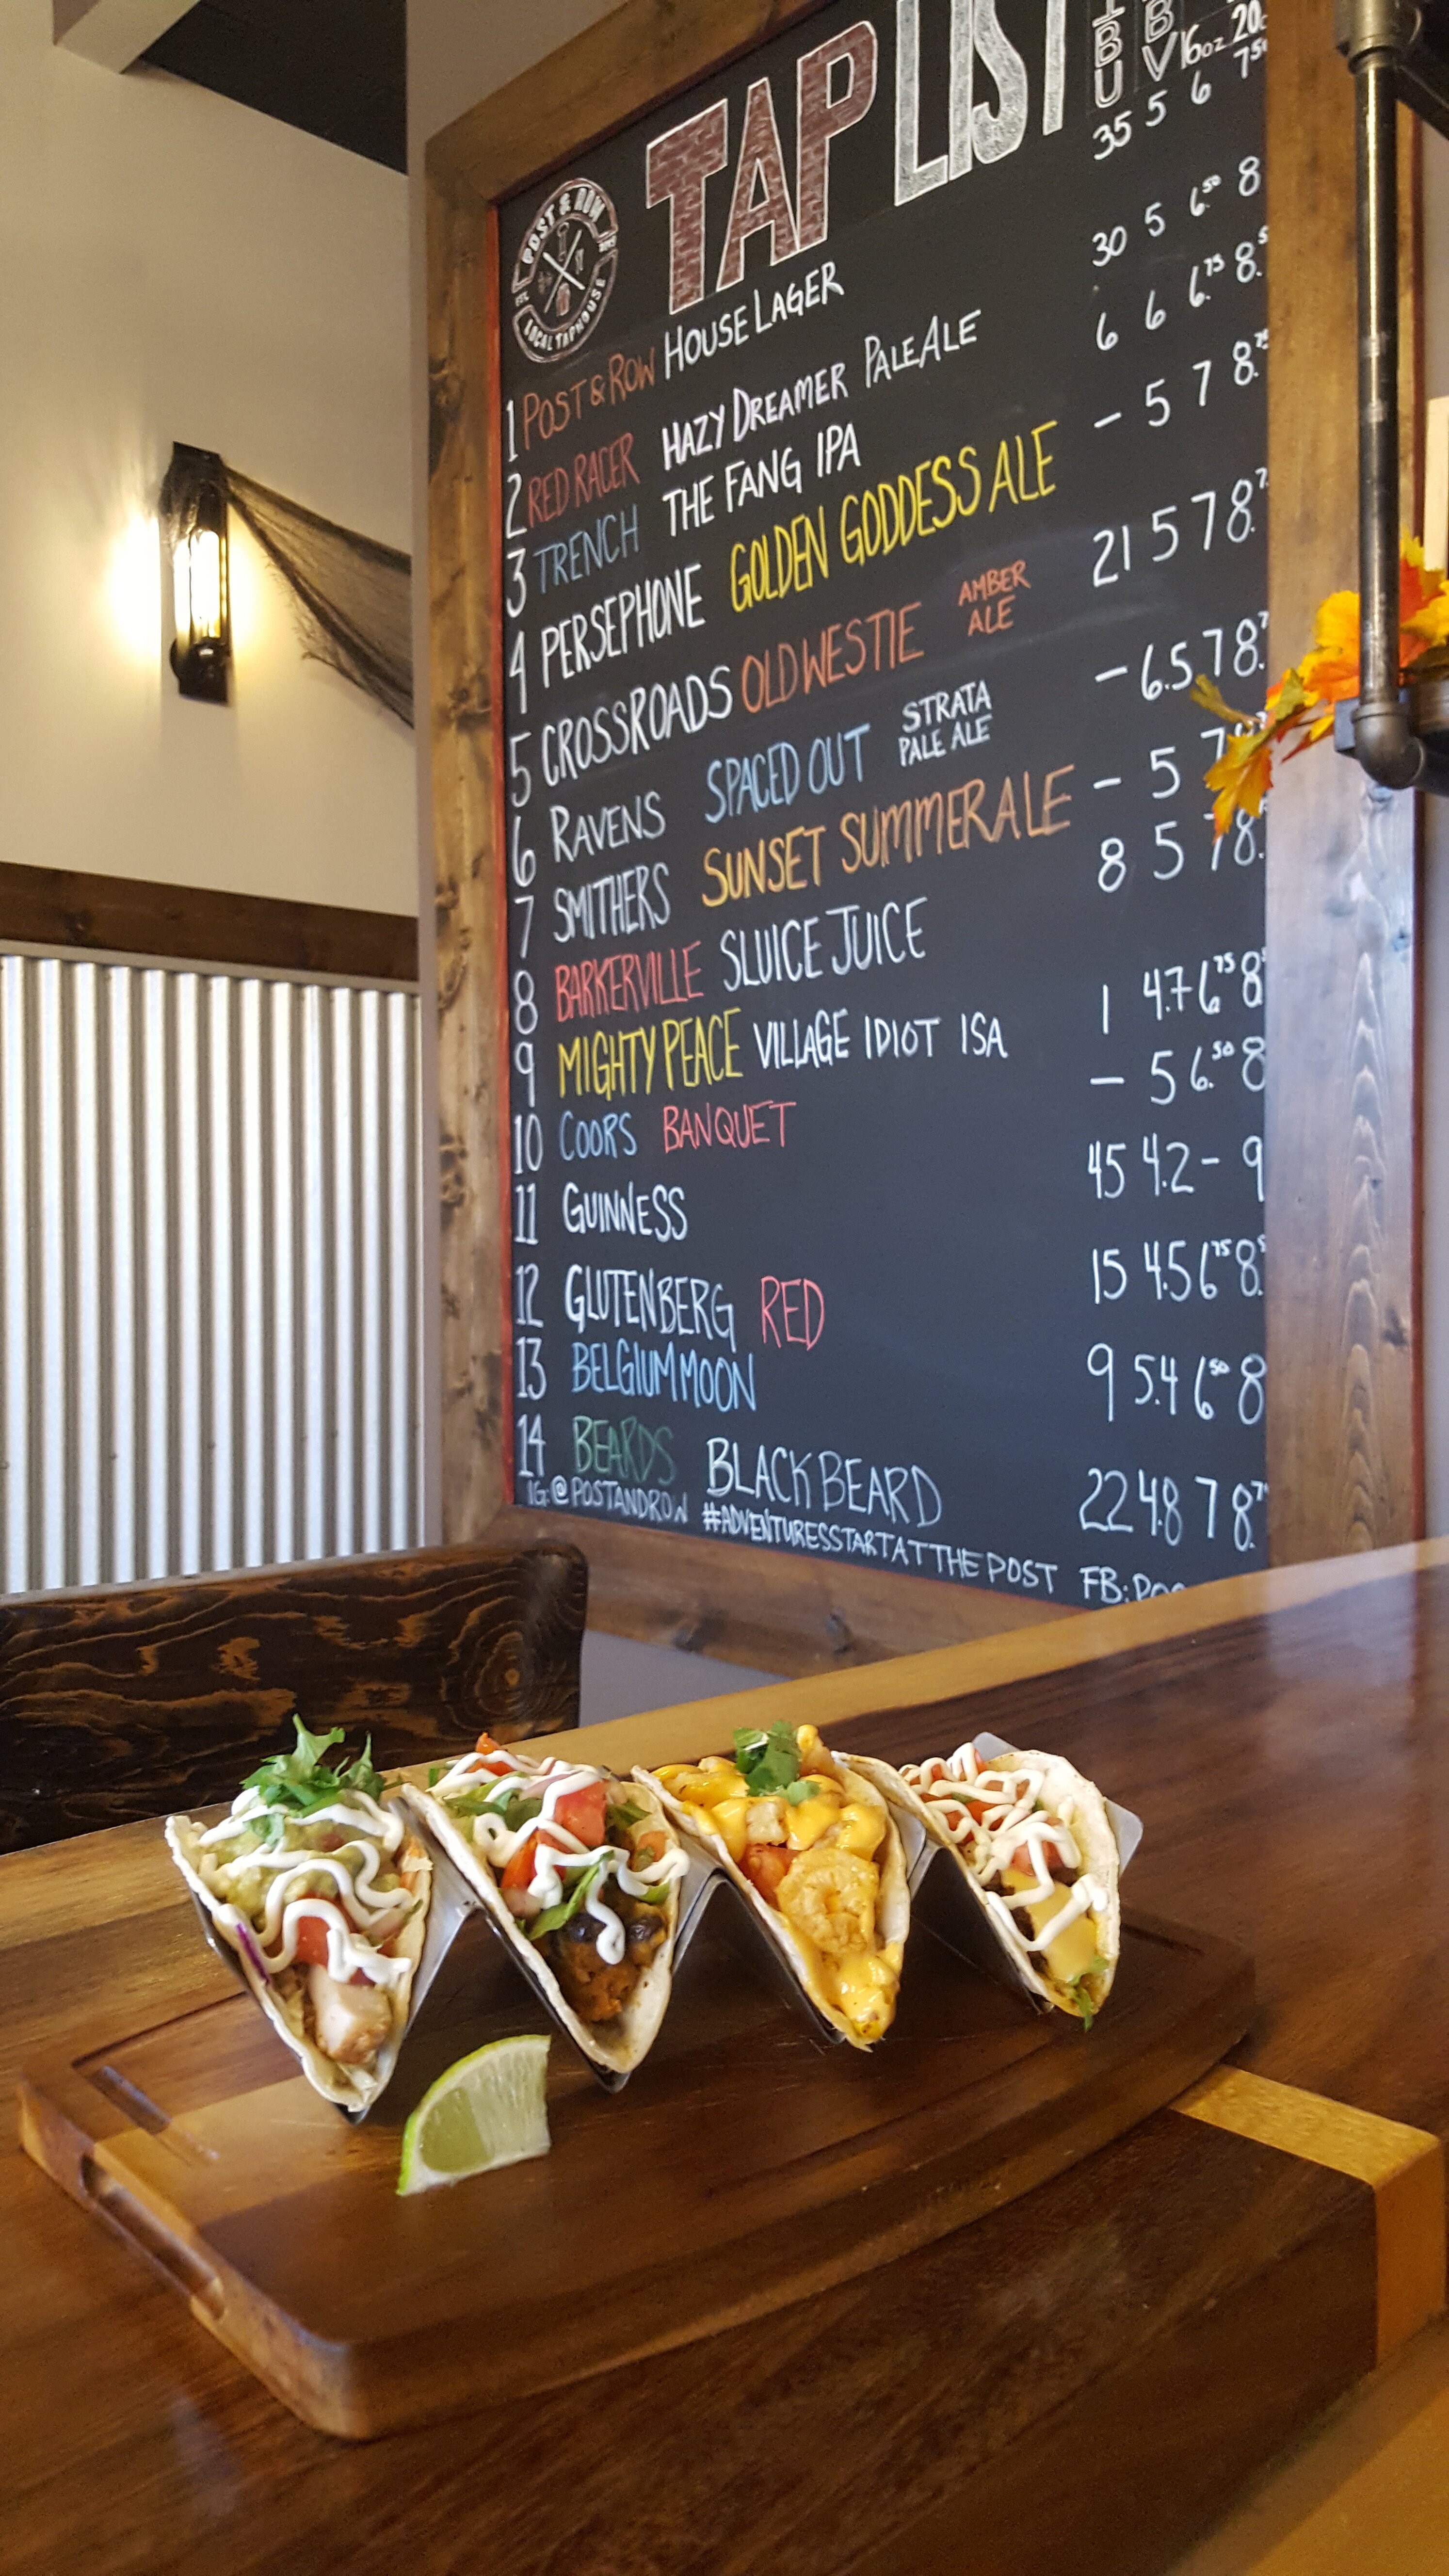 TAP LIST
IBU ABV 16oz 20
POST & ROW
LOCAL TAPHOUSE
1 POST & ROW HOUSE LAGER 35 5 6 7.50
2 RED RACER HAZY DREAMER PALE ALE 30 5 6.50 8
3 TRENCH THE FANG IPA 6 6 6.75 8.5
4 PERSEPHONE GOLDEN GODDESS ALE - 5 7 8.75
5 CROSSROADS OLD WESTIE AMBER ALE 21 5 7 8.7
6 RAVENS SPACED OUT STRATA PALE ALE - 6.5 7 8.7
7 SMITHERS SUNSET SUMMER ALE - 5 7
8 BARKERVILLE SLUICE JUICE 8 5 7 8.
9 MIGHTY PEACE VILLAGE IDIOT ISA 1 4.7 6.75 8
10 COORS BANQUET - 5 6.50 8
11 GUINNESS 45 4.2 - 9
12 GLUTENBERG RED 15 4.5 6.75 8.5
13 BELGIUM MOON 9 5.4 6.50 8
14 BEARDS BLACK BEARD 22 4.8 7 8.75
IG: @POSTANDROW #ADVENTURESSTARTATTHEPOST FB: